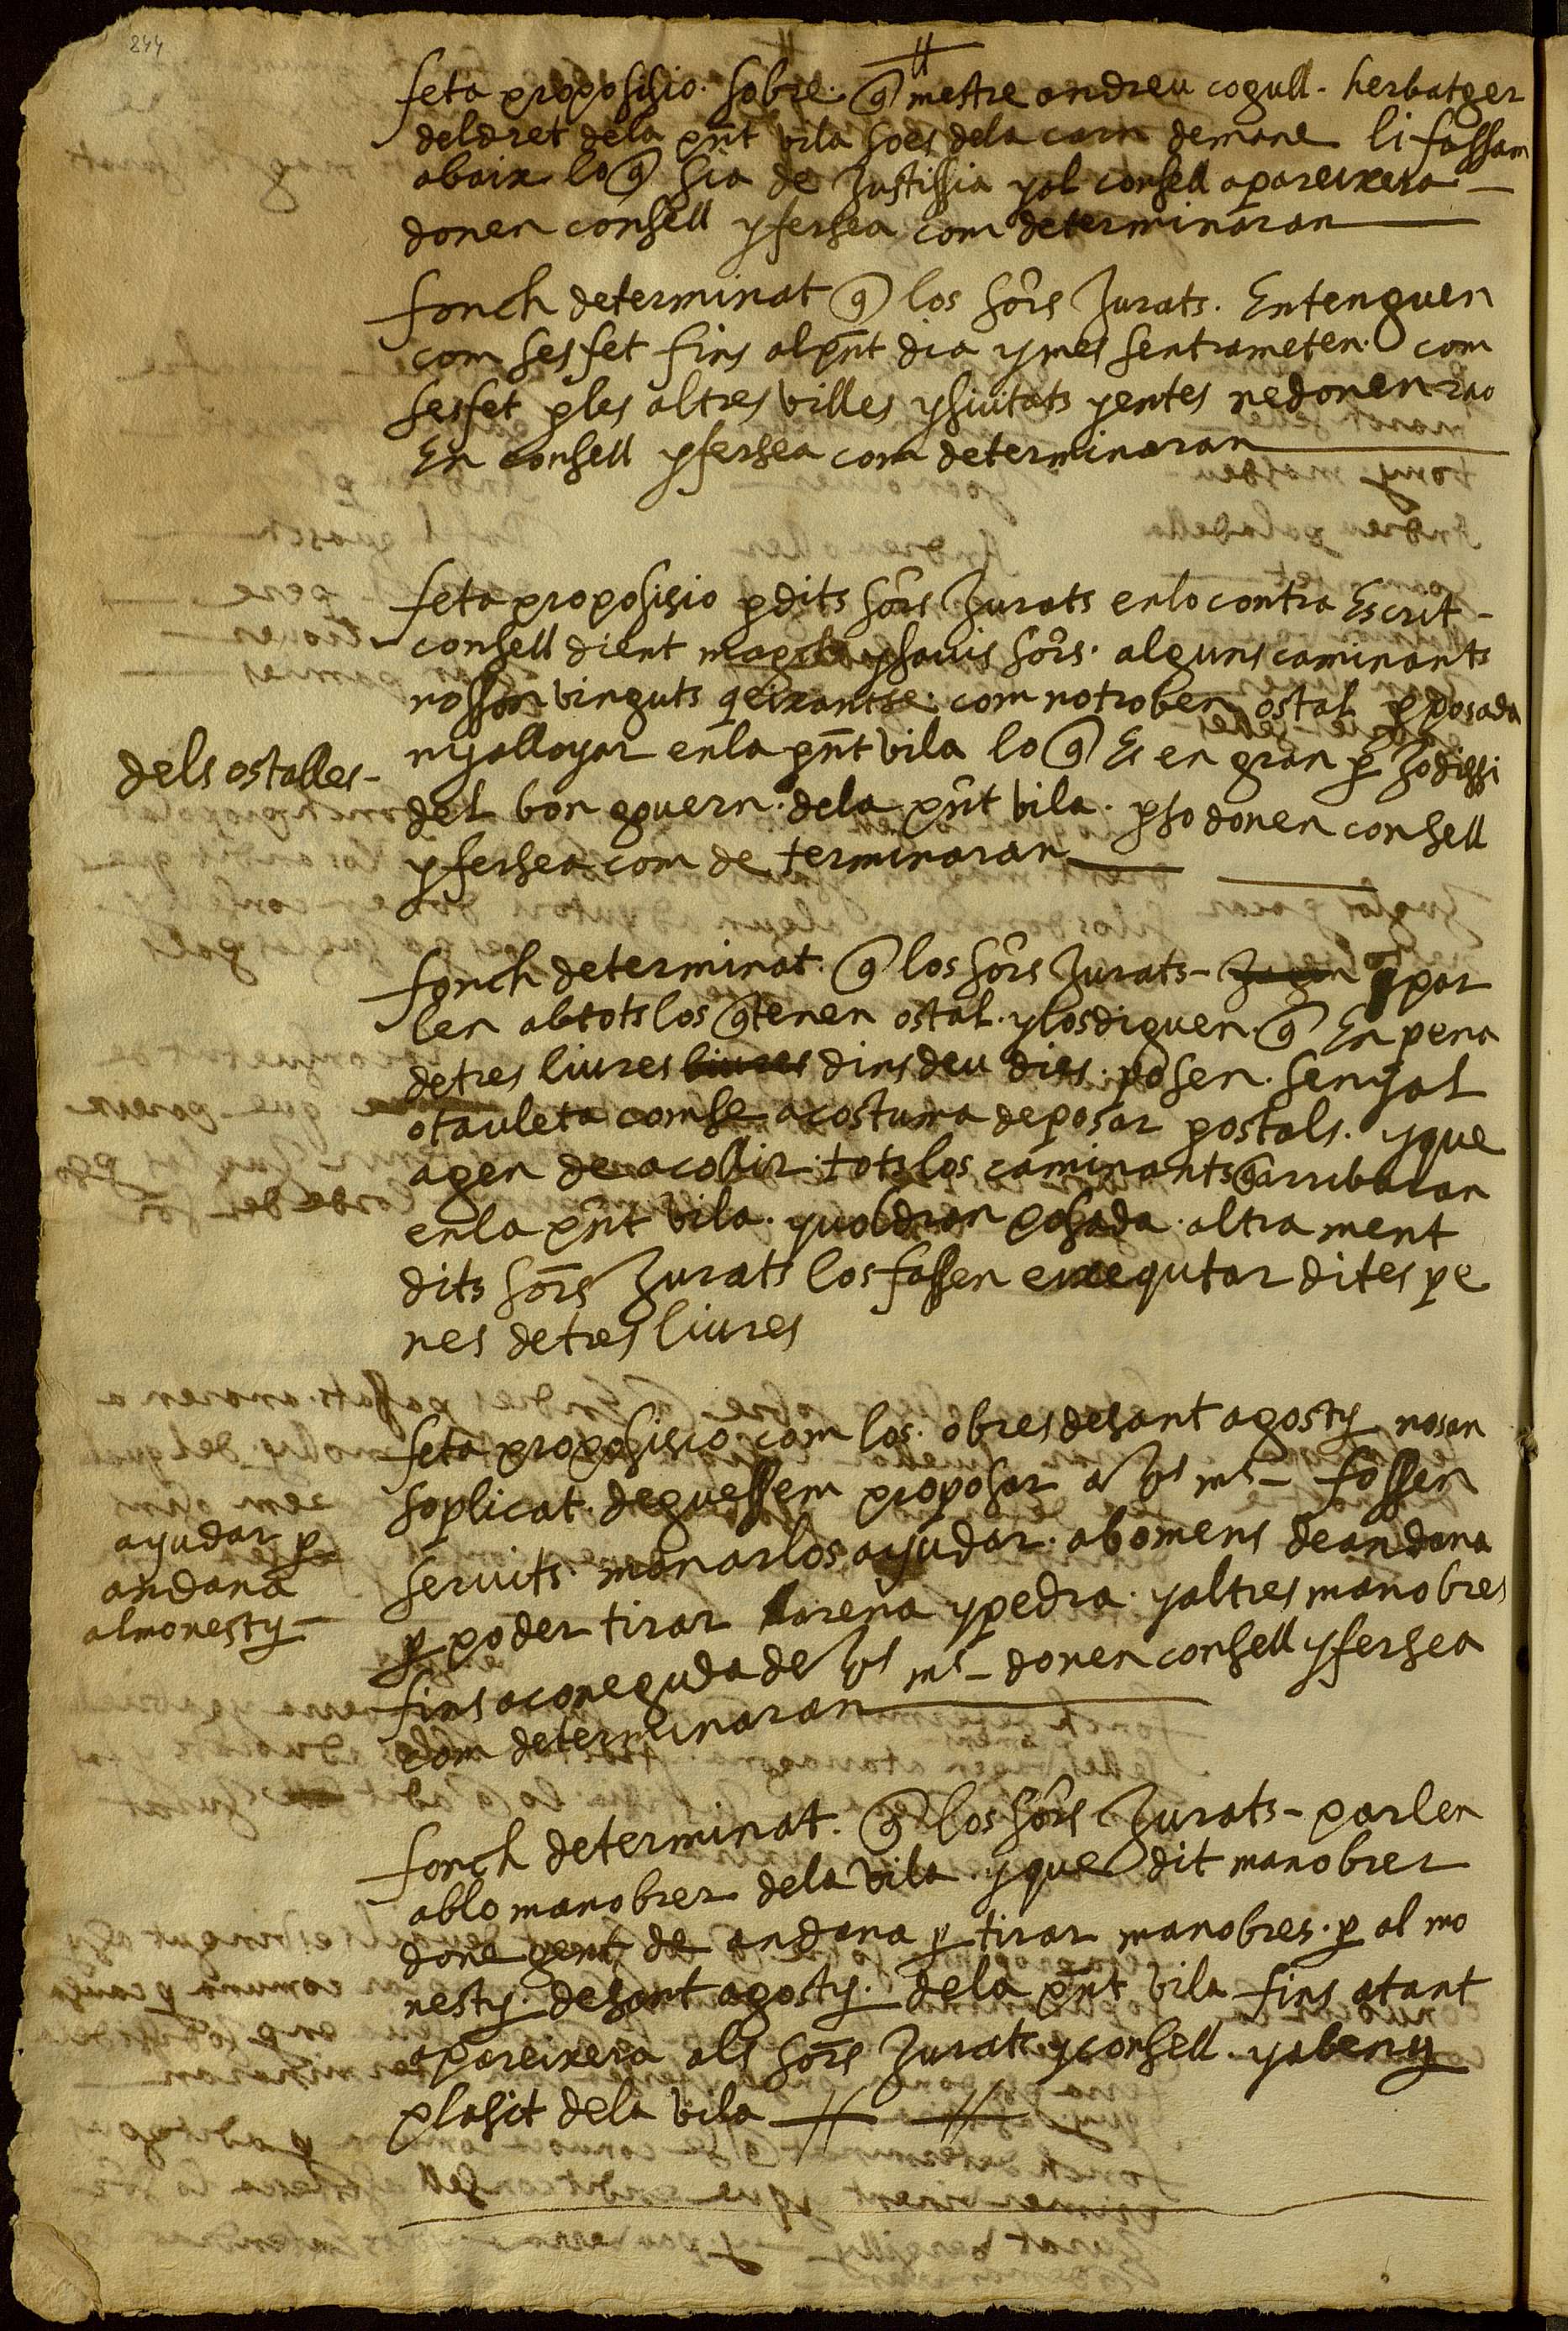 244
feta proposisio. sobre. q̃ mestre andreu cogull. herbatger
deldret dela pñt vila soes dela carn demane li fassam
abaix lo q̃ sia de Justissia yal consell apareixera
donen consell yfersea com determinaran
fonch determinat q̃ los sõrs Jurats. Entenguen
com sesfet fins alpñt dia ymes sentrameten. com
sesfet ples altres villes ysiutats yentes nedonen rao
En consell yfersea com determinaran
feta proposisio pdits sõrs Jurats enlo contra Escrit
consell dient ysavis sõrs. alguns caminants
nosson vinguts qeixantse. com notroben ostal p posada
nyalloyar enla pñt vila lo q̃ Es en gran p
dels ostalles
del bon govern. dela pñt vila. pso donen consell
yfersea com de terminaran
fonch determinat. q̃ los sõrs Jurats q̃ par
len abtots los q̃ tenen ostal. ylosdiguen. q̃ En pena
detres liures liures dins deu dies. posen. senyal
otauleta comse acostuma deposar postals. yque
agen de acollir totslos caminants q̃ arribaran
enla pñt vila. yvoldran posada. altra ment
dits sõrs Jurats losfassen exequtar dites pe
nes detres liures
feta proposisio com los. obres desant agosty nosan
soplicat. deguessem proposar a vs ms fossen
servits. manarlos ayudar. abomens deandana
p poder tirar larena ypedra. yaltres manobres
ayudar p
andana
almonesty
fins aconeguda de vs ms donen consell yfersea
com determinaran
fonch determinat. q̃ los sõrs Jurats parlen
ablo manobrer dela vila. yque dit manobrer
done gent de andana p tirar manobres. p al mo
nesty. desant agosty. dela pñt vila fins atant
apareixera als sõrs Jurats yconsell. yabeny
plasit dela vila